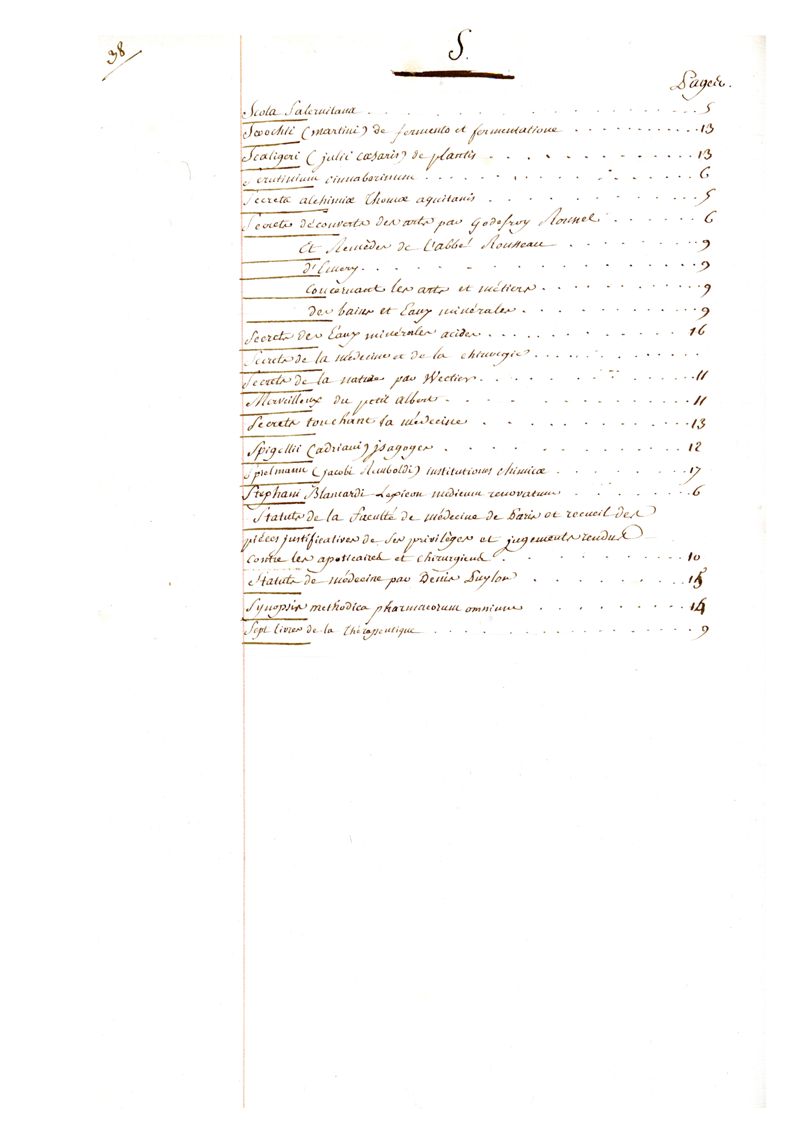 38
S.
Pages.
Scola Salernitana . . . . . . . . . . 5
Scoochli (martini) de fermento et fermentatione . . . . . . . . . . 13
Scaligeri (julii cæsaris) de plantis . . . . . . . . . . 13
Scrutinium cinnaborinum . . . . . . . . . . 6
Secreta alchimiæ Thomæ aquitanis . . . . . . . . . . 5
Secrets découverts des arts par Godefroy Roussel . . . . . . 6
Et Remèdes de l'abbé Rousseau . . . . . . . 9
d'Emery . . . . . . . . . . 9
concernant les arts et métiers . . . . . . . 9
des bains et Eaux minérales . . . . . . . 9
Secrets des Eaux minérales acides . . . . . . . . . . 16
Secrets de la médecine et de la chirurgie . . . . . . . . . .
Secrets de la nature par Wecker . . . . . . . . . . 11
Merveilleux du petit Albert . . . . . . . . . . 11
Secrets touchant la médecine . . . . . . . . . . 13
Spigellii (adriani) jsagoges . . . . . . . . . . 12
Spielmann (jacobi Reinboldi) institutiones chimicæ . . . . . . . 17
Stephani Blancardi Lexicon medicum renovatum . . . . . . 6
Statuts de la Faculté de médecine de Paris et recueil des
piéces justificatives de ses privilèges et jugements rendus
contre les apoticaires et chirurgiens . . . . . . . . . . 10
Statuts de médecine par Denis Puylon . . . . . . . 15
Synopsis methodica pharmacorum omnium . . . . . . . 14
Sept livres de la Thérapeutique . . . . . . . . . . 9